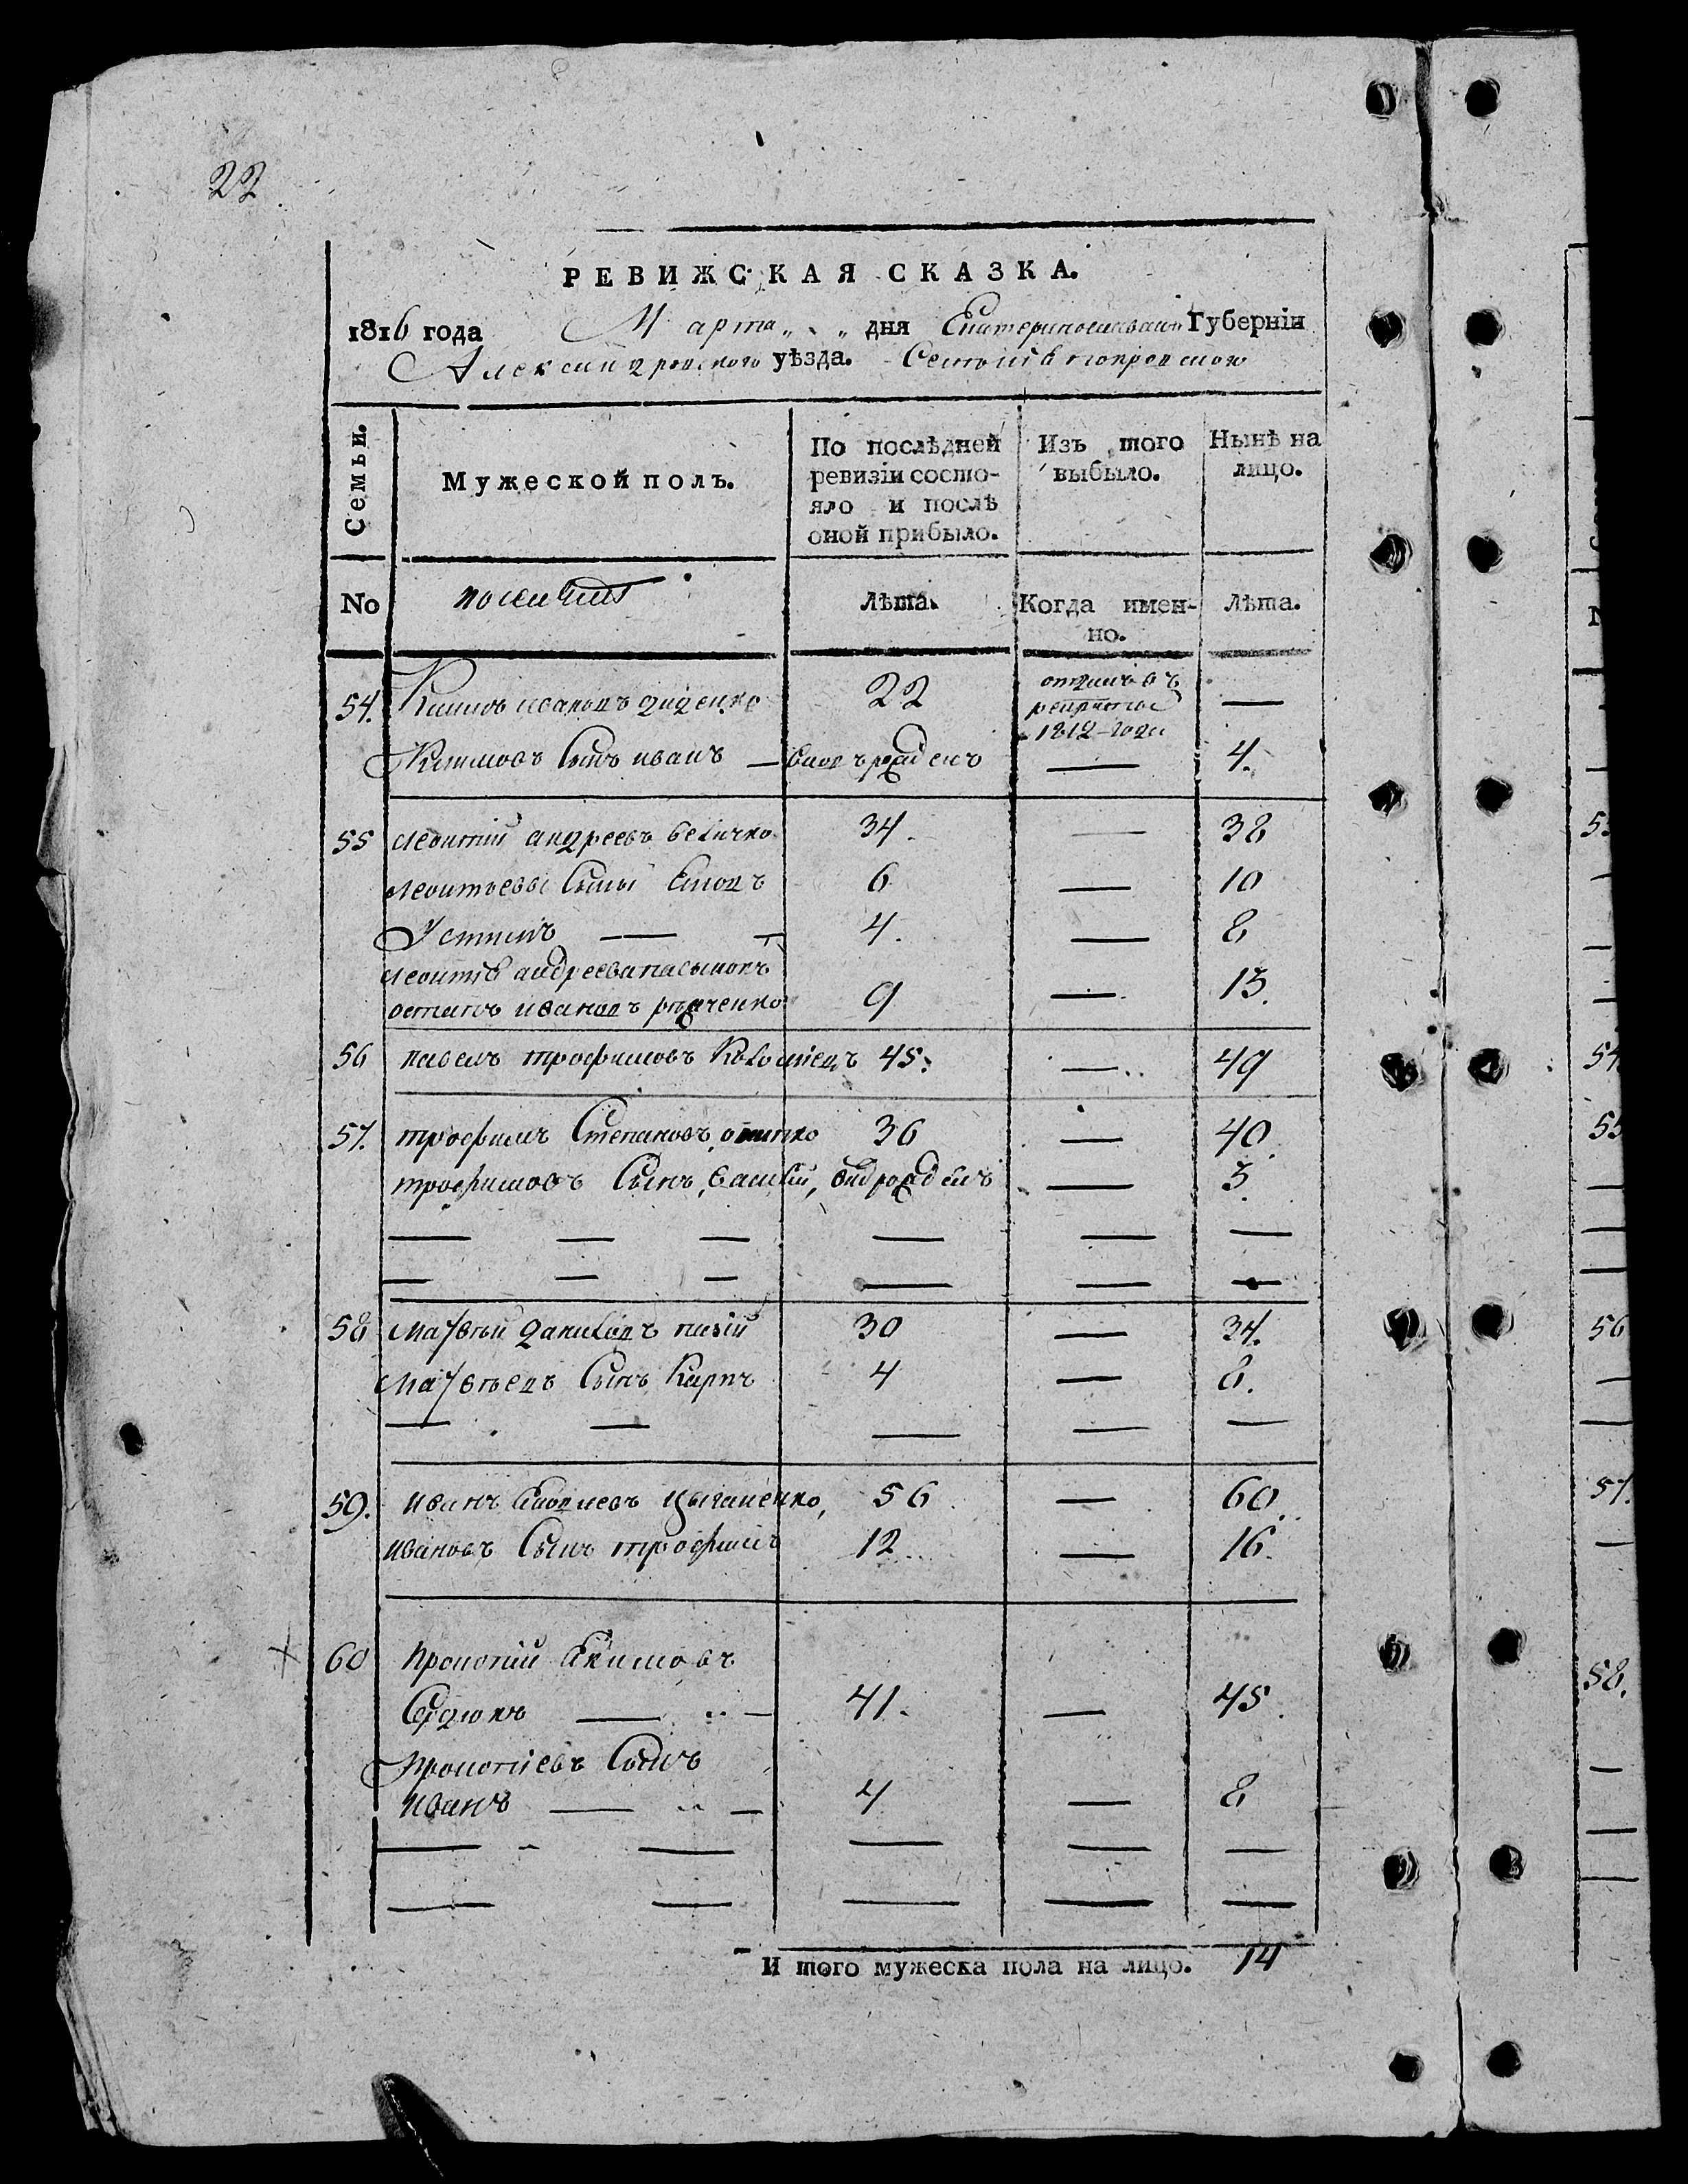 22
РЕВИЖСКАЯ СКАЗКА.
1816 года Марта „ „ дня Екатеринославской Губерніи
Александровского уѣзда.
Семьи.
Мужеской полъ.
По послѣдней ревизіи состояло и послѣ оной прибыло.
Изъ того выбыло.
Нынѣ на лицо.
No
Лѣта.
Когда именно.
Лѣта.
54. Климъ Ивановъ Диденко 22 отданъ въ рекруты 1812 года —
Климовъ Сынъ иванъ — вновърожденъ — 4.
55 Леонтий андреевъ величко 34. — 38
Леонтьевы Сыны 6 — 10
Устинъ — — 4. — 8
Леонтія андреева пасынокъ
остапъ ивановъ 9 — 13.
56 павелъ трофимовъ Коломіецъ 45. — 49
57. трофимъ Степановъ 36 — 40.
трофимовъ Сынъ, василій, — 3.
— — — — — —
— — — — — —
58 Маѳвѣй даниловъ 30 — 34.
Маѳвѣевъ Сынъ Карпъ 4 — 8.
— — — — —
59. иванъ цыганенко, 56 — 60.
ивановъ Сынъ трофимъ 12 — 16.
60 Прокопій Екимовъ
Сердюкъ — — 41. — 45.
Прокопіевъ Сынъ
Иванъ — — 4 — 8
— — — — —
— — — — —
И того мужеска пола на лицо. 14
53
54
55
56
57.
58.